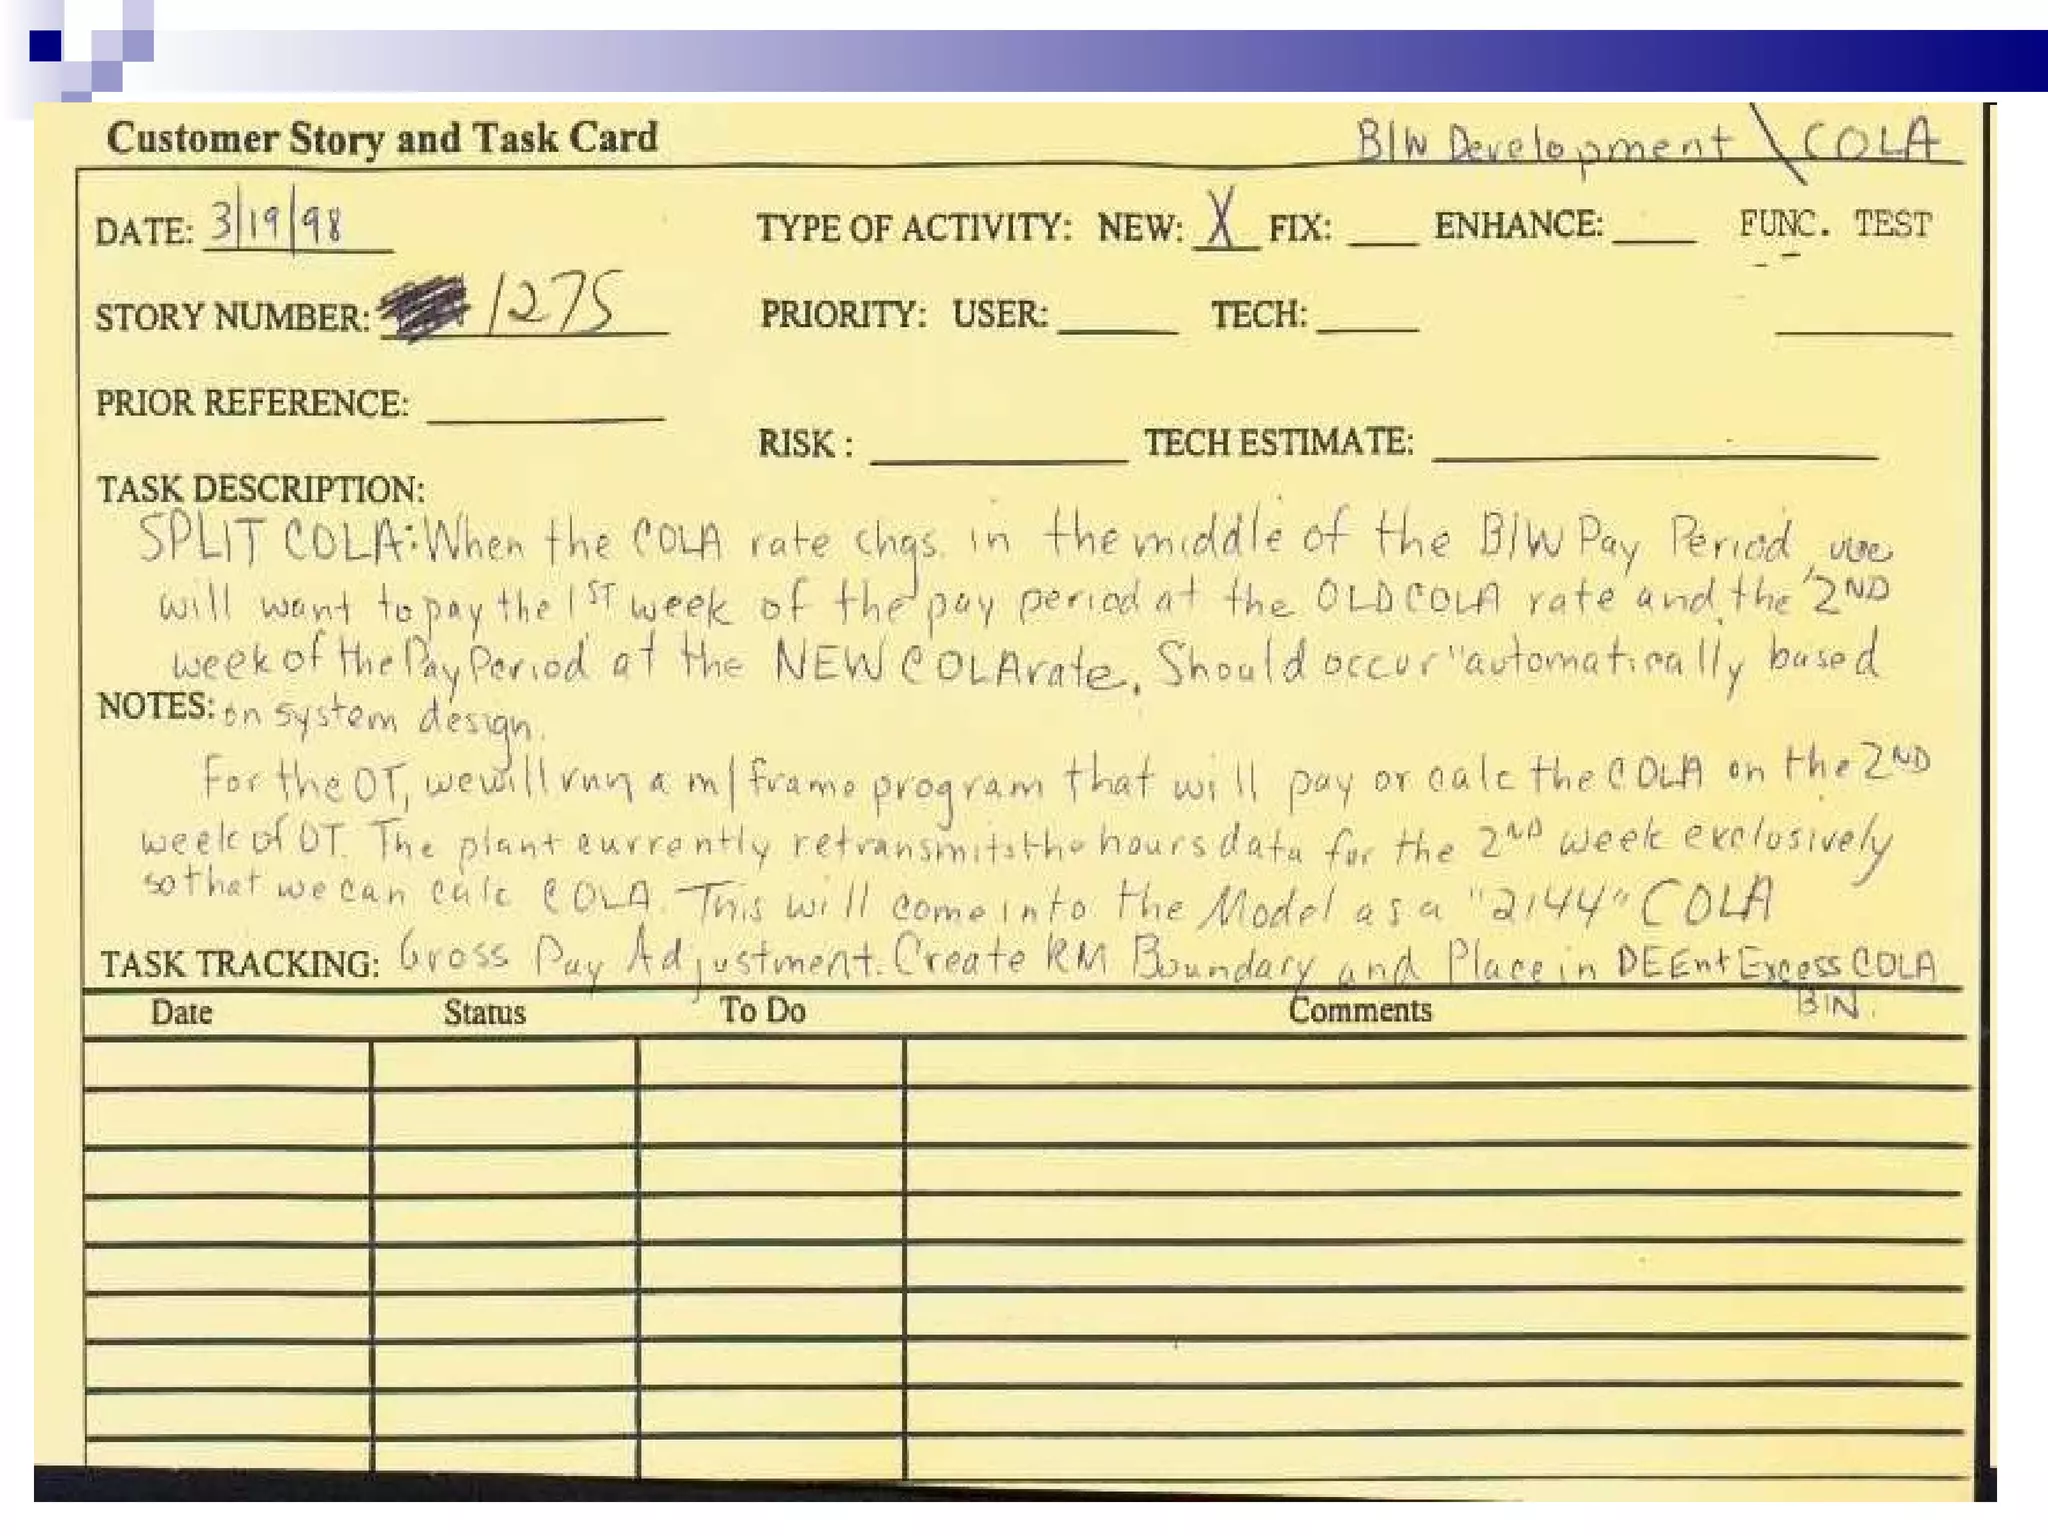 Customer Story and Task Card B/W Development \ COLA
DATE: 3/19/98 TYPE OF ACTIVITY: NEW: X FIX: ENHANCE: FUNC. TEST
STORY NUMBER: 1275 PRIORITY: USER: TECH:
PRIOR REFERENCE:
RISK : TECH ESTIMATE:
TASK DESCRIPTION:
SPLIT COLA: When the COLA rate chgs. in the middle of the B/W Pay Period, we
will want to pay the 1ST week of the pay period at the OLD COLA rate and the 2ND
week of the Pay Period at the NEW COLA rate. Should occur "automatically based
NOTES: on system design.
For the OT, we will run a m/frame program that will pay or calc the COLA on the 2ND
week of OT. The plant currently retransmits the hours data for the 2ND week exclusively
so that we can calc COLA. This will come into the Model as a "2144" COLA
TASK TRACKING: Gross Pay Adjustment. Create RM Boundary and Place in DEEnt Excess COLA
Date Status To Do Comments BIN.